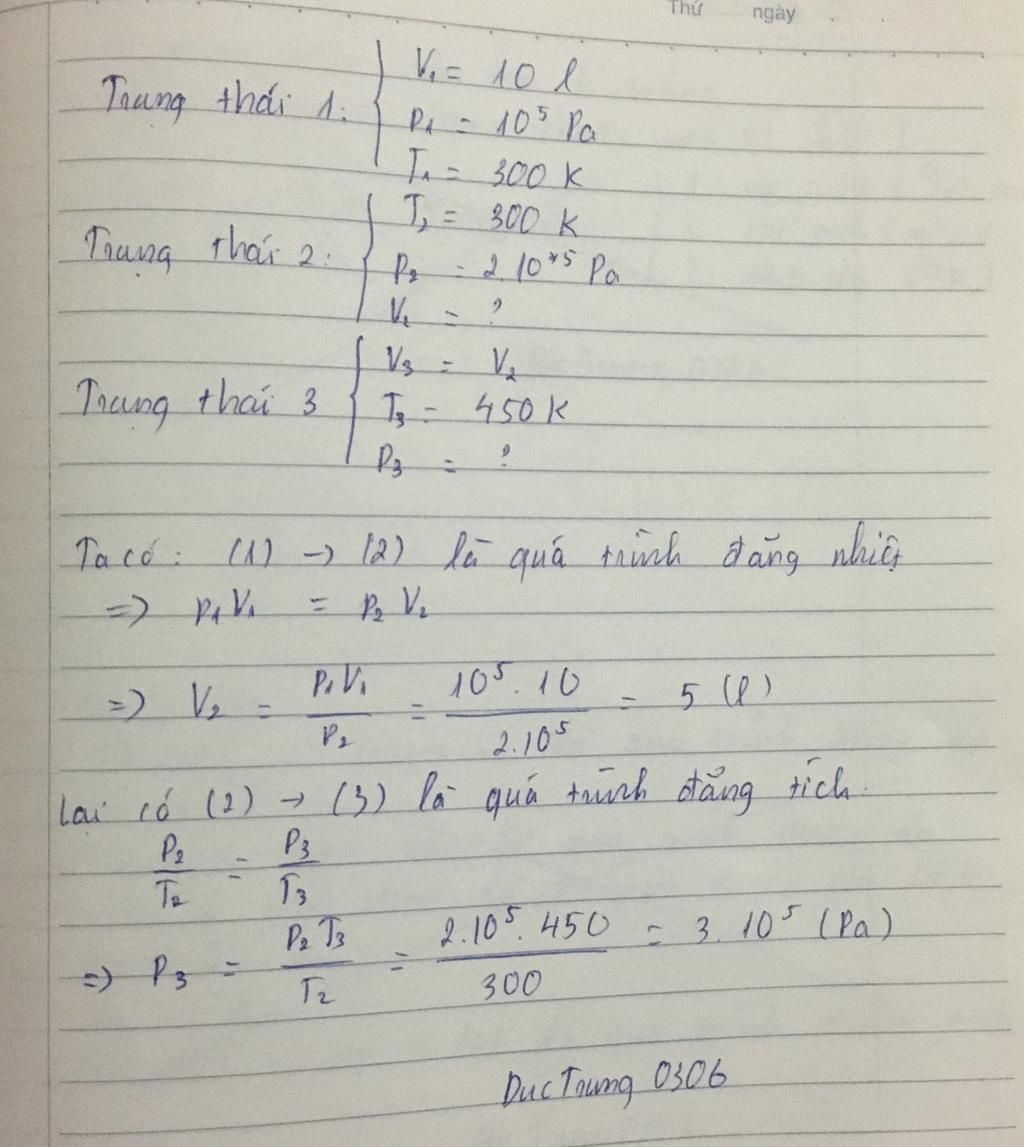 Thứ ngày
Trạng thái 1: V₁ = 10 l
P₁ = 10⁵ Pa
T₁ = 300 K
Trạng thái 2: T₂ = 300 K
P₂ = 2.10⁺⁵ Pa
V₂ = ?
Trạng thái 3 V₃ = V₂
T₃ = 450 K
P₃ = ?
Ta có: (1) → (2) là quá trình đẳng nhiệt
=> P₁V₁ = P₂V₂
=> V₂ = P₁V₁ / P₂ = 10⁵.10 / 2.10⁵ = 5 (l)
Lại có (2) → (3) là quá trình đẳng tích.
P₂ / T₂ = P₃ / T₃
=> P₃ = P₂T₃ / T₂ = 2.10⁵.450 / 300 = 3.10⁵ (Pa)
DucTrung 0306